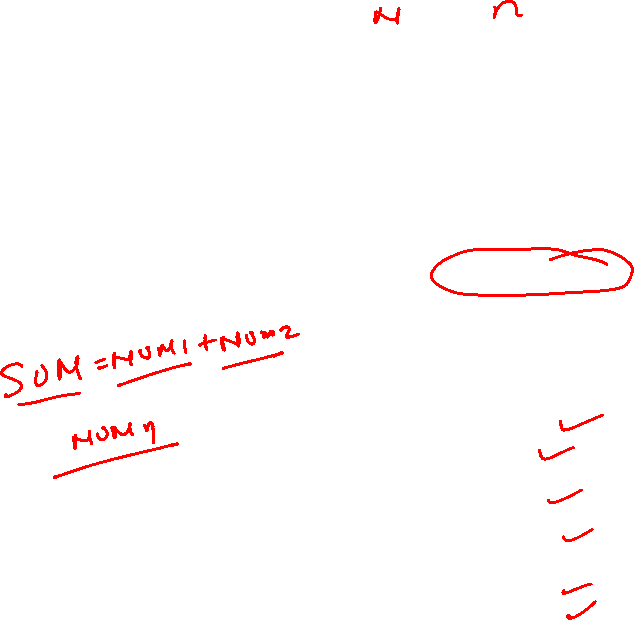 N n
SUM = NUM1 + NUM2
NUM n